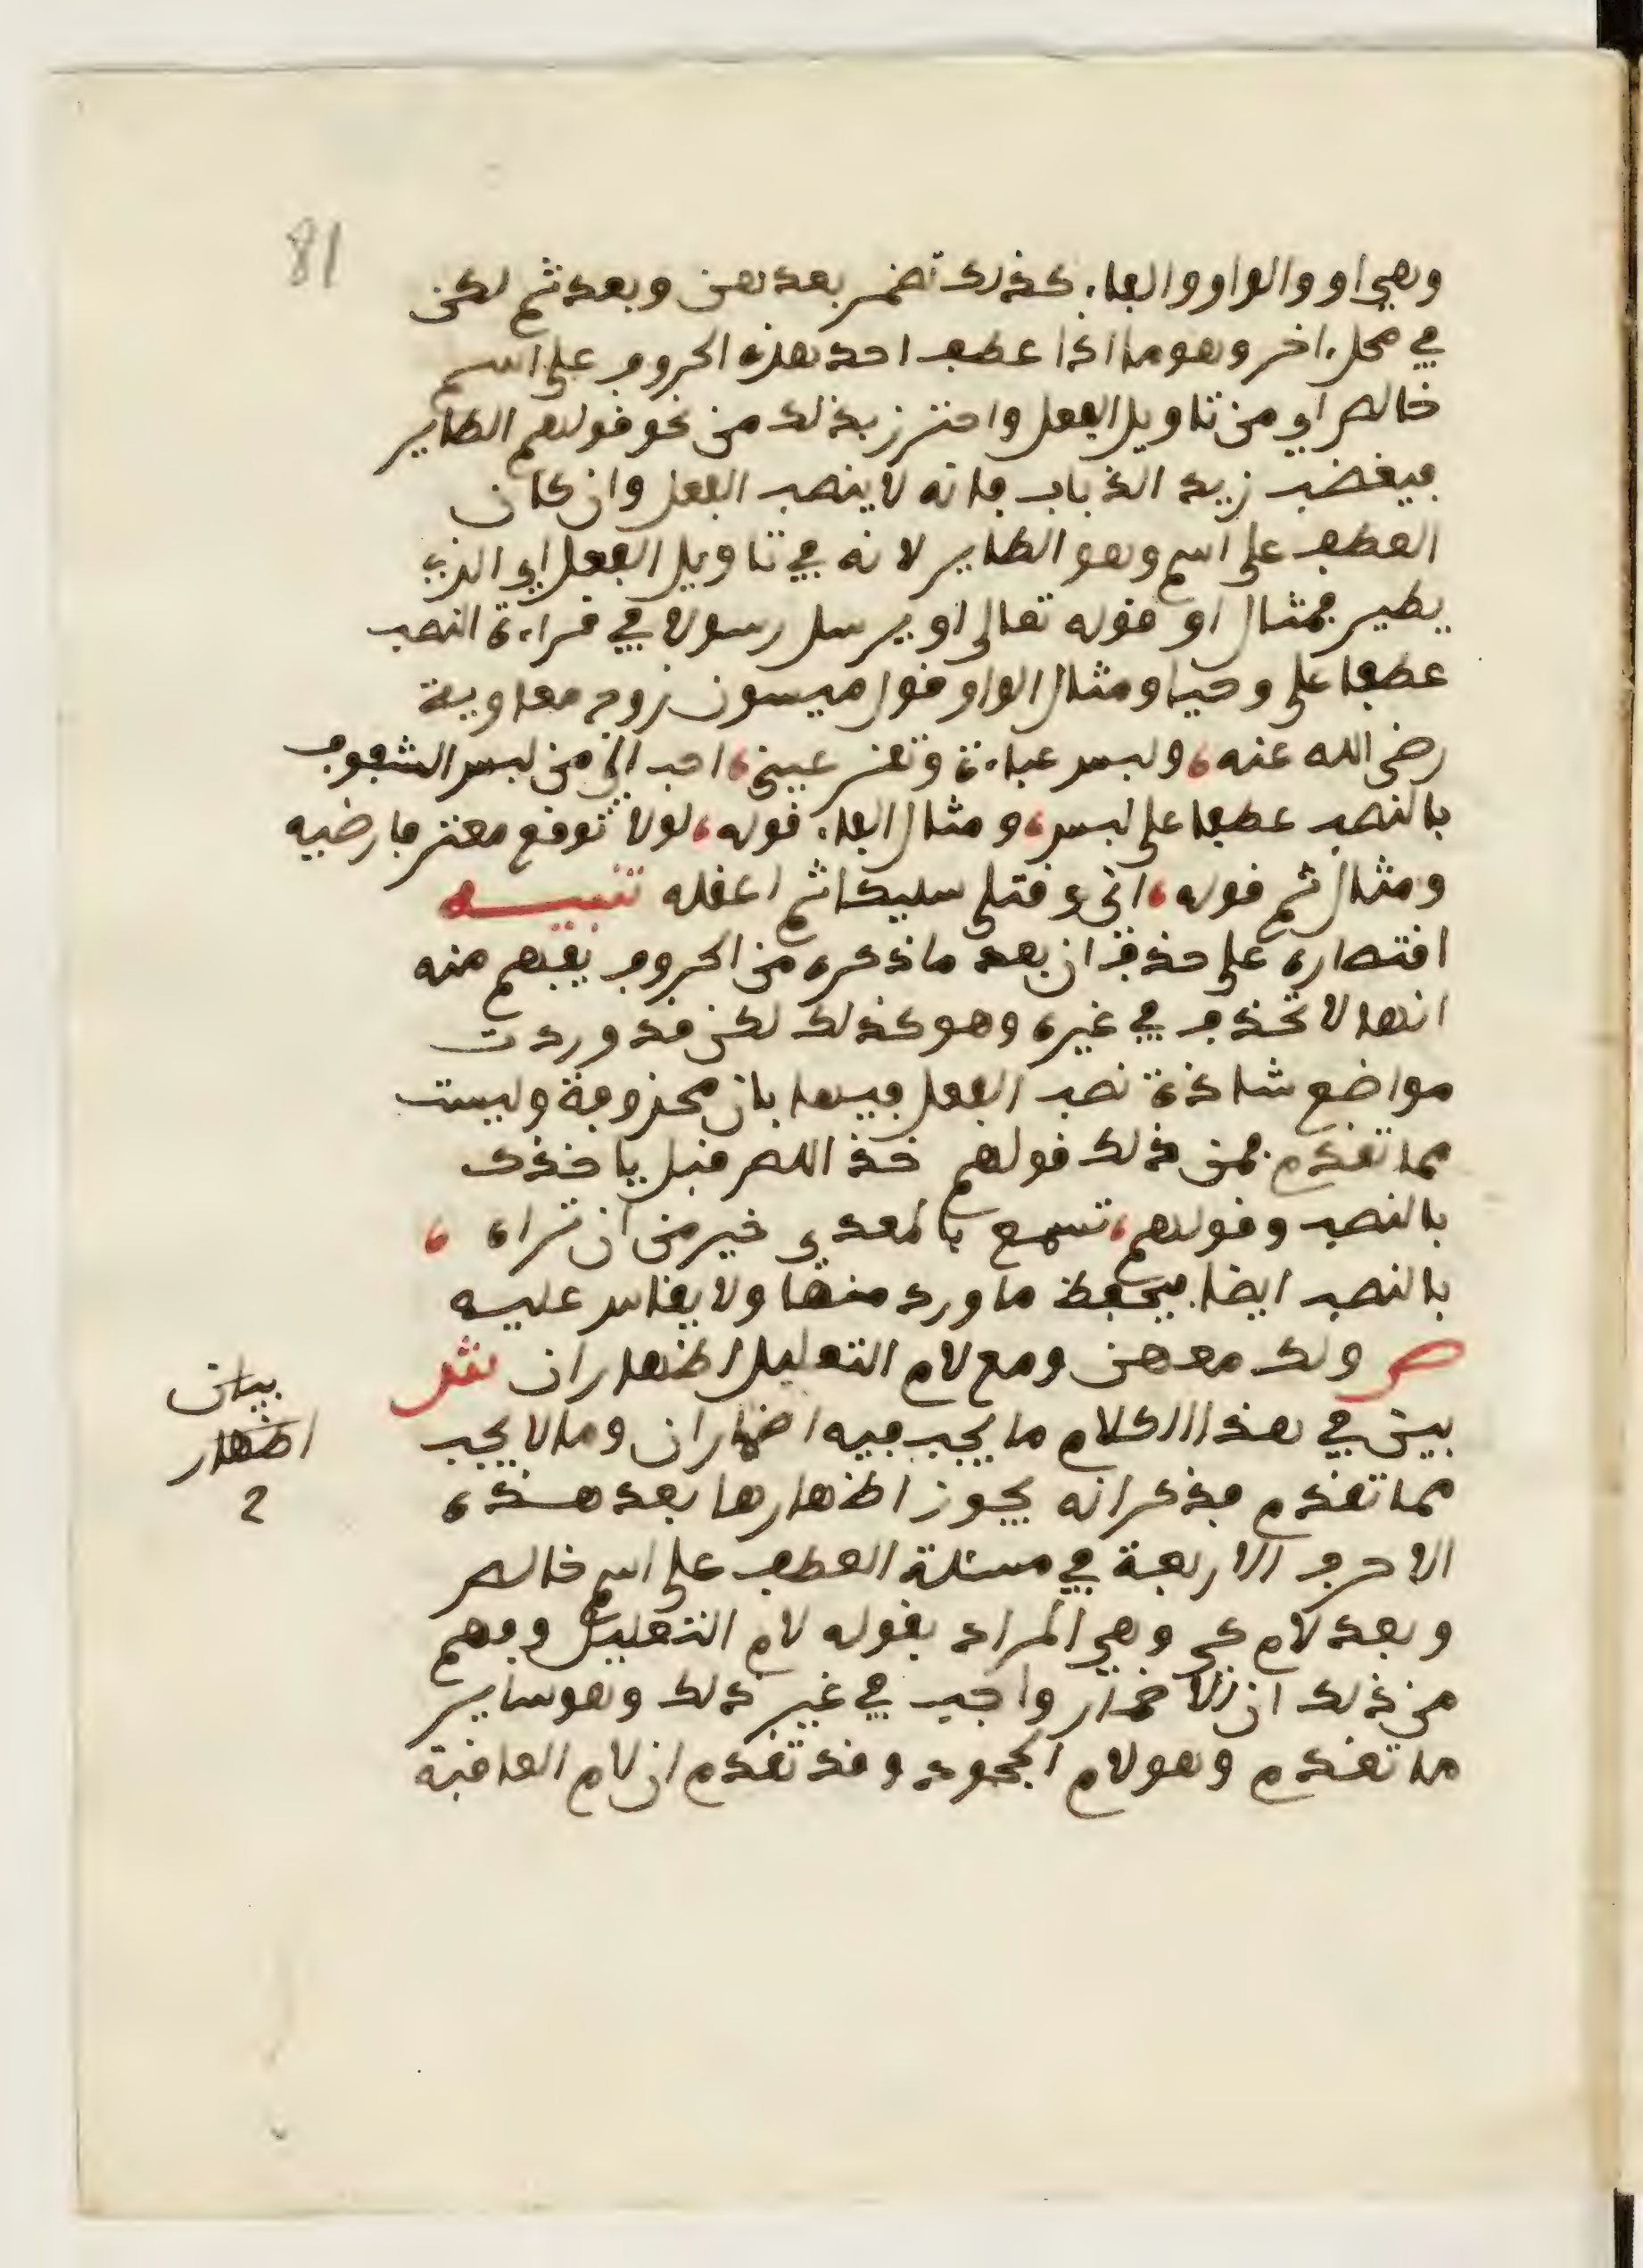 81
وهي او والواو والفاء كذلك تضمر بعدهن وبعد ثم لكن
في محل اخر وهو ما اذا عطف احد هذه الحروف على اسم
خالص اي من تاويل الفعل واحترز بذلك من نحو قولهم الطاير
فيغضب زيد الذباب فانه لا ينصب الفعل وان كان
العطف على اسم وهو الطاير لانه في تاويل الفعل اي الذي
يطير فمثال او قوله تعالى او يرسل رسولا في قراءة النصب
عطفا على وحيا ومثال الواو قول ميسون زوج معاوية
رضى الله عنه، ولبس عباءة وتقر عيني، احب الي من لبس الشفوف
بالنصب عطفا على لبس، ومثال الفاء قوله، لولا توقع معتر فارضيه
ومثال ثم قوله، اني وقتلي سليكا ثم اعقله تنبيه
اقتصاره على حذف ان بعد ما ذكره من الحروف يفهم منه
انها لا تحذف في غيره وهو كذلك لكن قد وردت
مواضع شاذة نصب الفعل فيها بان محذوفة وليست
مما تقدم فمن ذلك قولهم خذ اللص قبل ياخذك
بالنصب وقولهم، تسمع بالمعدي خير من ان تراه ،
بالنصب ايضا فيحفظ ما ورد منها ولا يقاس عليه
ص ولك معهن ومع لام التعليل اظهار ان ش
بين في هذا الكلام ما يجب فيه اضمار ان وما لا يجب
مما تقدم فذكر انه يجوز اظهارها بعد هذه
الاحرف الاربعة في مسئلة العطف على اسم خالص
وبعد لام كي وهي المراد بقوله لام التعليل وفهم
من ذلك ان الاضمار واجب في غير ذلك وهو ساير
ما تقدم وهو لام الجحود وقد تقدم ان لام العاقبة
بيان
اظهار
2